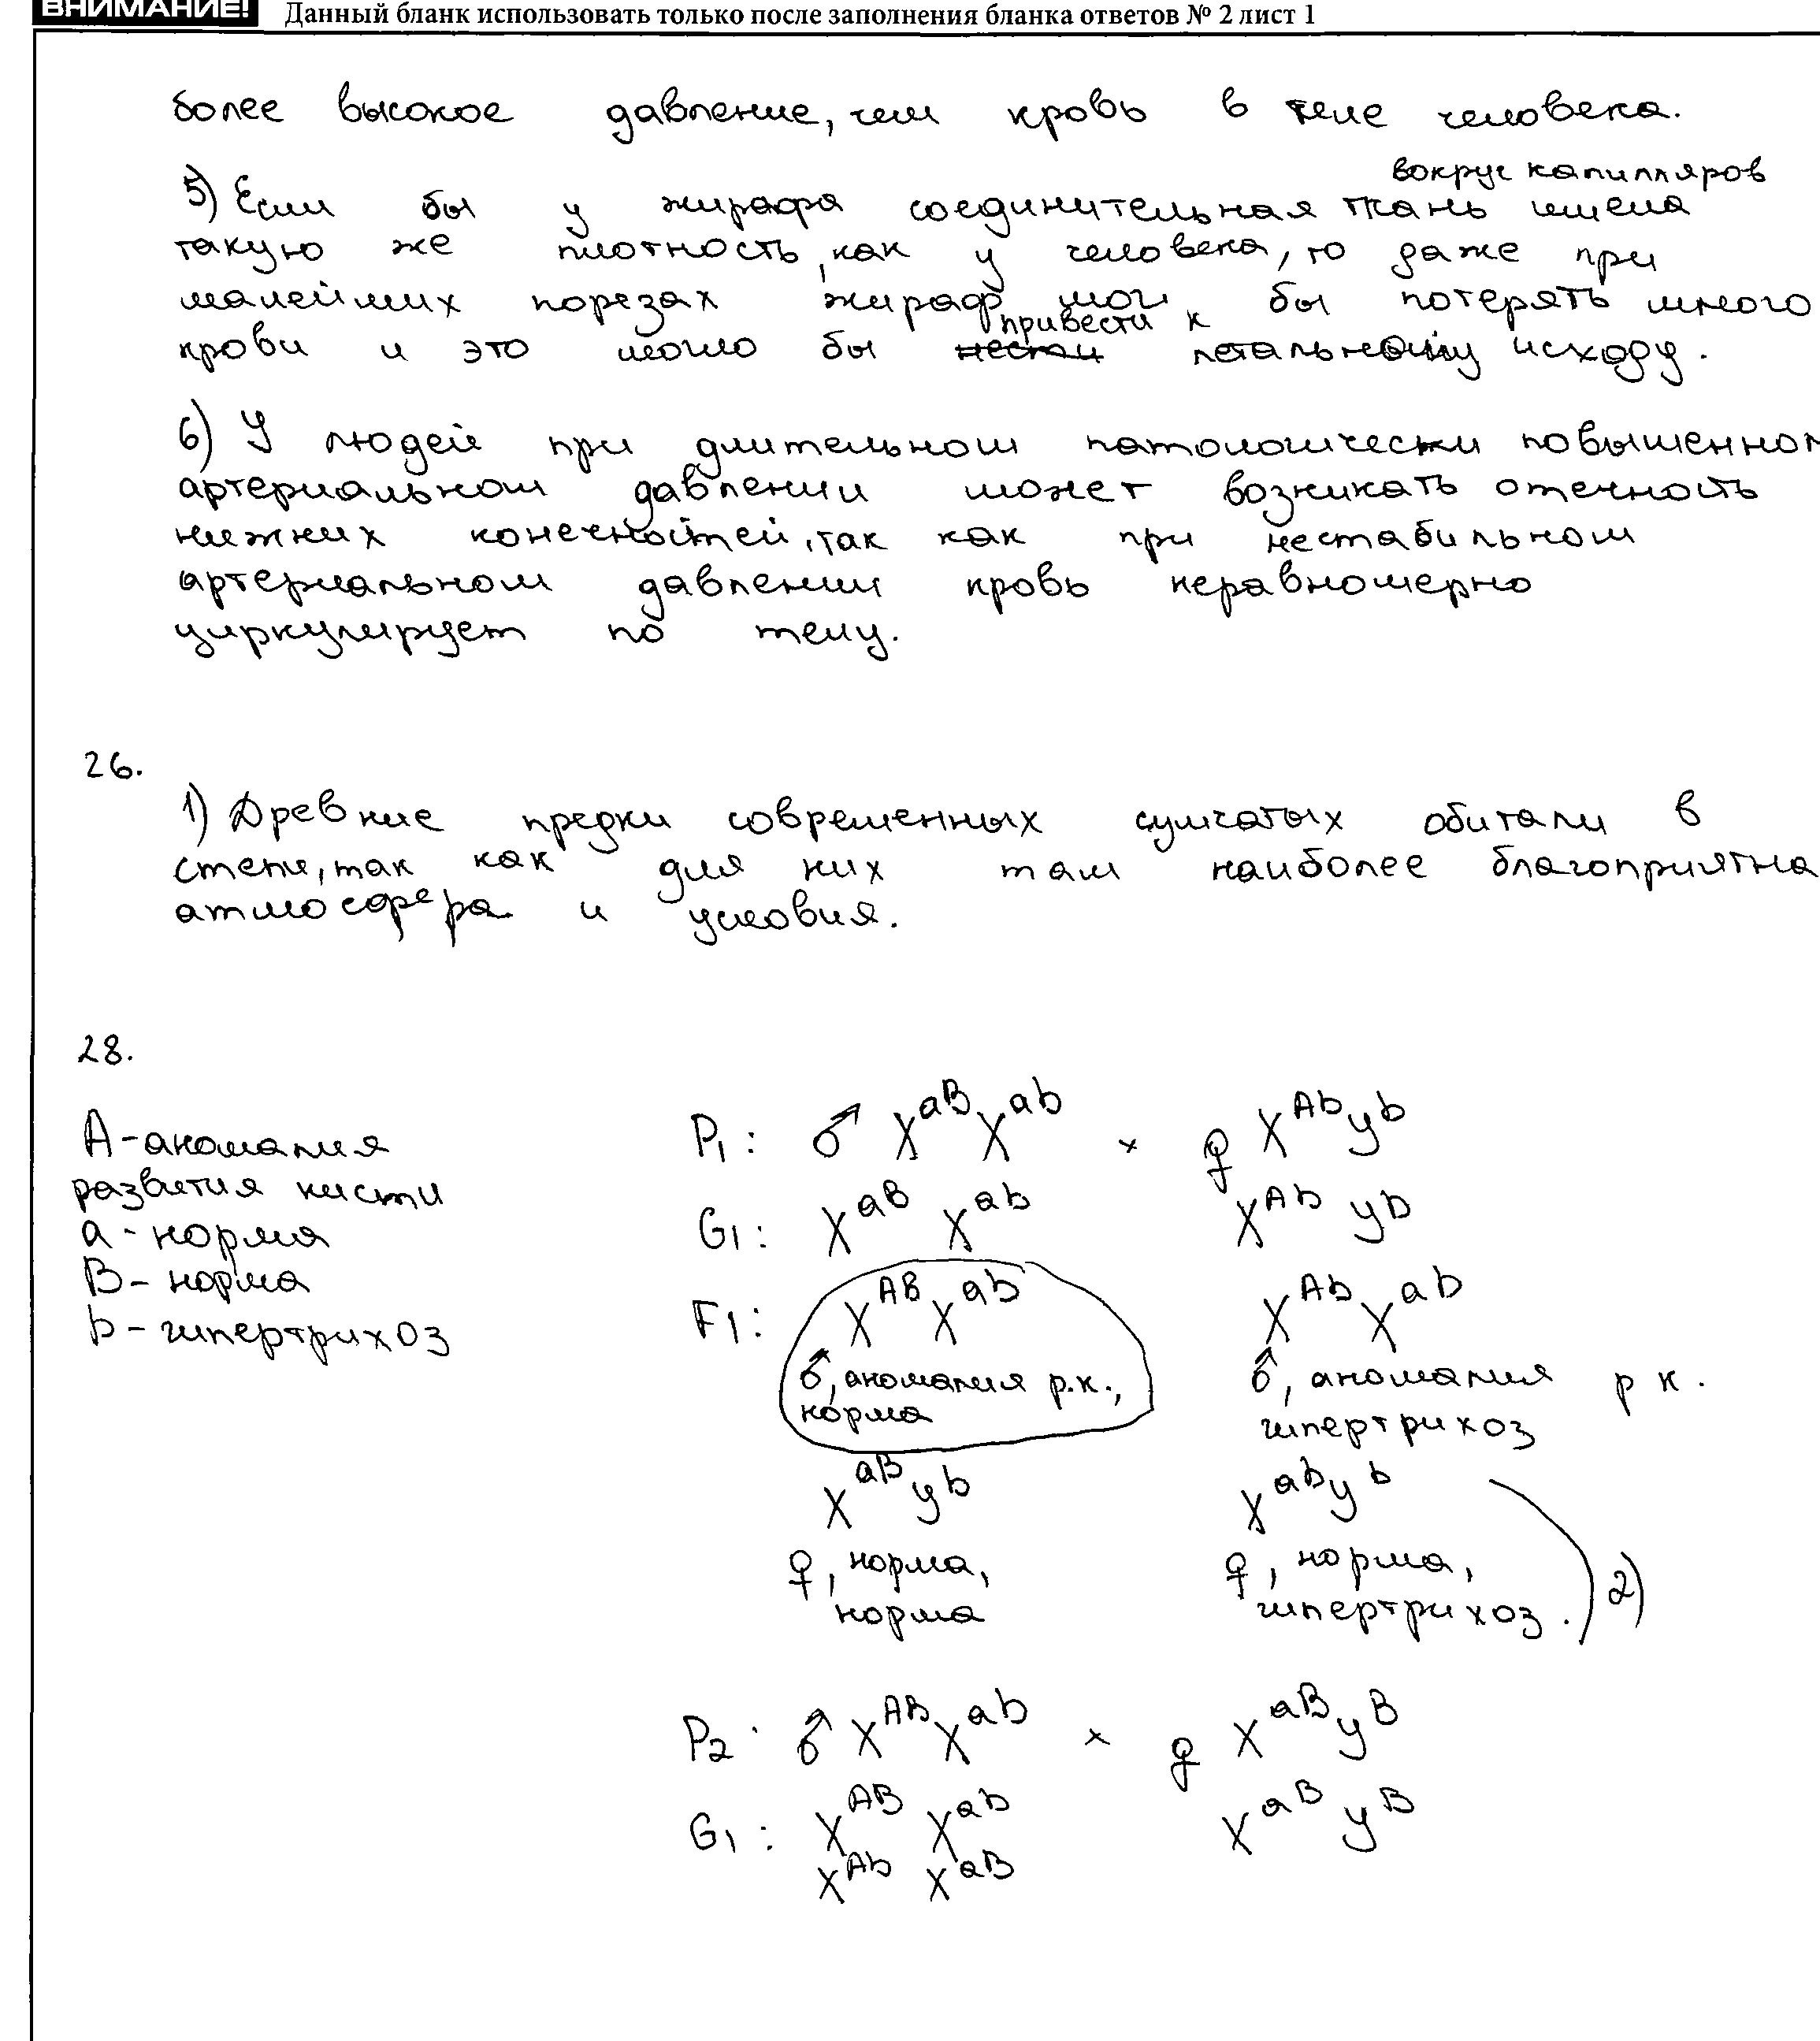 ВНИМАНИЕ! Данный бланк использовать только после заполнения бланка ответов № 2 лист 1
более высокое давление, чем кровь в теле человека.
вокруг капилляров
5) Если бы у жирафа соединительная ткань имела
такую же плотность, как у человека, то даже при
малейших порезах жираф мог бы потерять много
привести к
крови и это могло бы нести летальному исходу.
6) У людей при длительном патологически повышенном
артериальном давлении может возникать отечность
нижних конечностей, так как при нестабильном
артериальном давлении кровь неравномерно
циркулирует по телу.
26.
1) Древние предки современных сумчатых обитали в
степи, так как для них там наиболее благоприятна
атмосфера и условия.
28.
A - аномалия
развития кисти
a - норма
B - норма
b - гипертрихоз
P₁: ♂ X^aB X^ab × ♀ X^Ab y^b
G₁: X^aB X^ab X^Ab y^b
F₁: X^AB X^ab X^Ab X^ab
♂, аномалия р.к., ♂, аномалия р к.
норма гипертрихоз
X^aB y^b X^ab y^b
♀, норма, ♀, норма, 2)
норма гипертрихоз.
P₂: ♂ X^AB X^ab × ♀ X^aB y^B
G₁: X^AB X^ab X^aB y^B
X^Ab X^aB